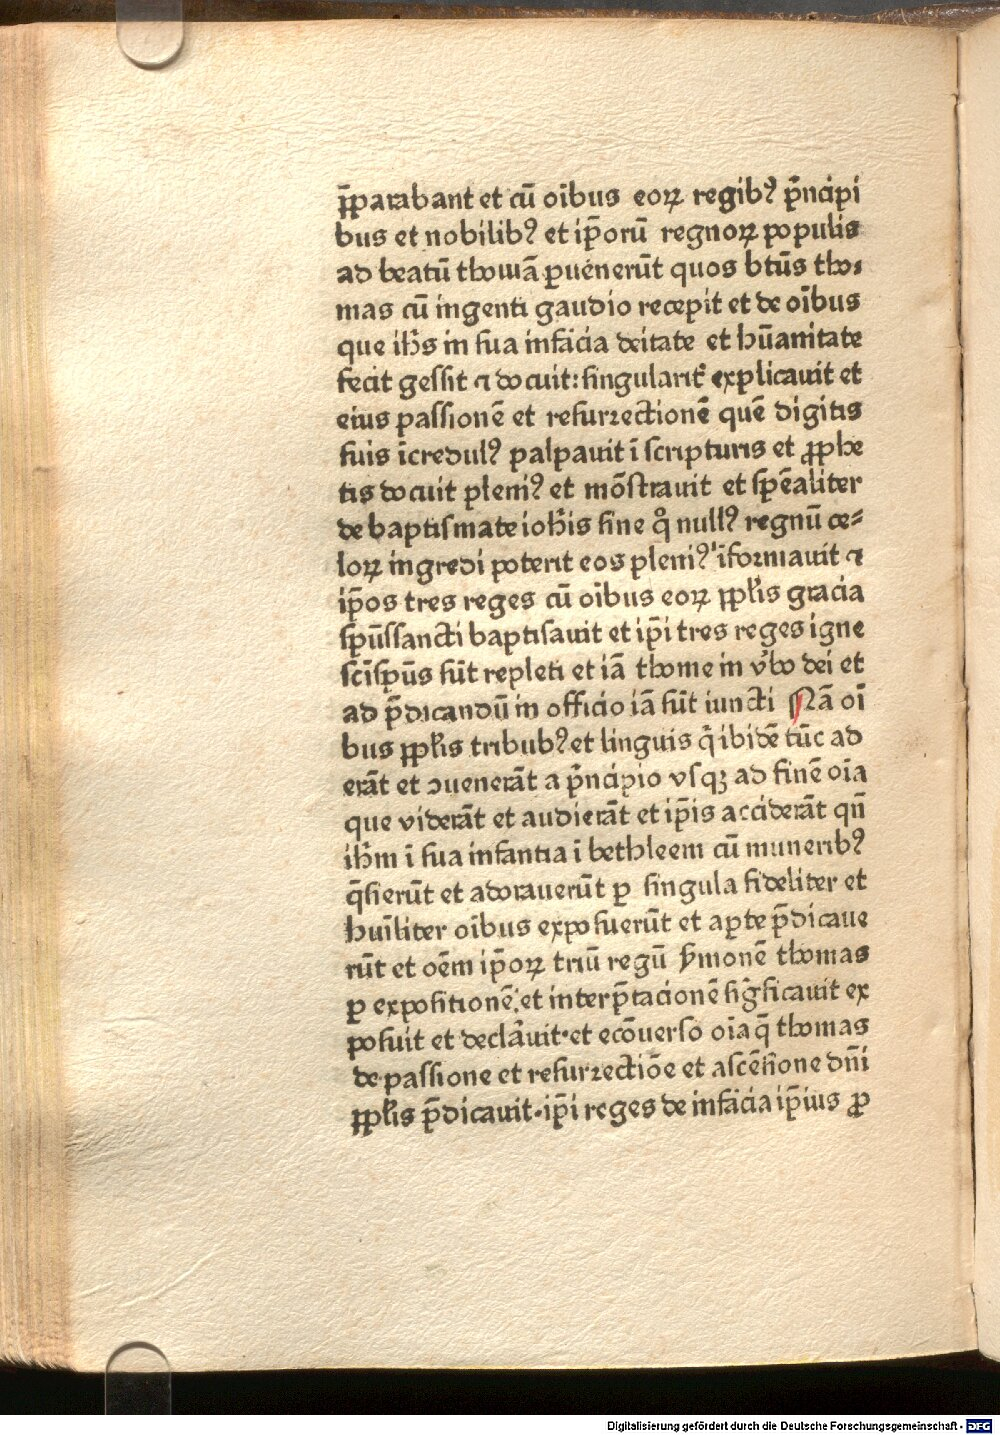 p̄parabant et cū oı̄bus eoꝝ regibꝰ pͥncipi
bus et nobilibꝰ et ip̄orū regnoꝝ populis
ad beatū thomā ꝑuenerūt quos btūs tho-
mas cū ingenti gaudio recepit et de oı̄bus
que ihūs in sua infācia deitate et hūanitate
fecit gessit ⁊ docuit: singularit᷑ explicauit et
eius passionē et resurrectionē quē digitis
suis īcredulꝰ palpauit ī scripturis et ꝓphe
tis docuit pleniꝰ et mōstrauit et spēaliter
de baptismate ioh̄is sine qͦ nullꝰ regnū ce-
loꝝ ingredi poterit eos pleniꝰ īformauit ⁊
ip̄os tres reges cū oı̄bus eoꝝ ppl̄is gracia
spūssancti baptisauit et ip̄i tres reges igne
scīspūs sūt repleti et iā thome in v̓bo dei et
ad p̄dicandū in officio iā sūt iuncti Nā oı̄
bus ppl̄is tribubꝰ et linguis q̄ ibidē tūc ad
erāt et ↄuenerāt a pͥncipio vsqꝫ ad finē oı̄a
que viderāt et audierāt et ip̄is acciderāt qn̄
ih̄m ī sua infantia ī bethleem cū muneribꝰ
q̄sierūt et adorauerūt ꝑ singula fideliter et
huı̄liter oı̄bus exposuerūt et aꝑte p̄dicaue
rūt et oēm ip̄oꝝ triū regū ẜmonē thomas
ꝑ expositionē et interp̄tacionē sigͥficauit ex
posuit et declāuit·et ecōuerso oı̄a q̄ thomas
de passione et resurrectiōe et ascēsione dn̄i
ppl̄is p̄dicauit·ip̄i reges de infācia ip̄ius ꝓ
Digitalisierung gefördert durch die Deutsche Forschungsgemeinschaft - DFG